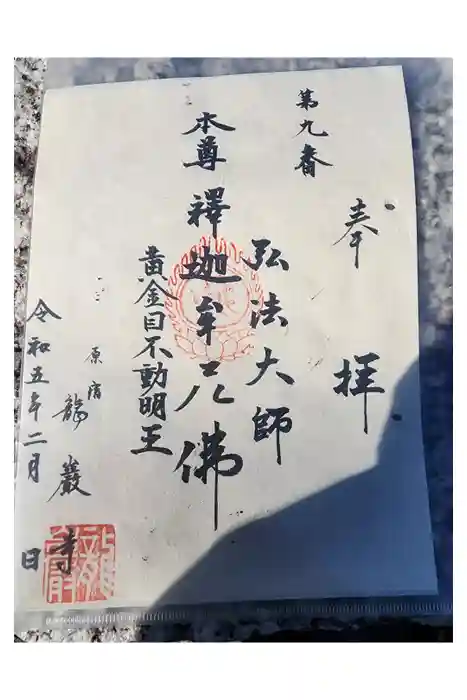 第九番
奉拝
弘法大師
本尊釋迦牟尼佛
黄金目不動明王
原宿
龍巖寺
令和五年二月日